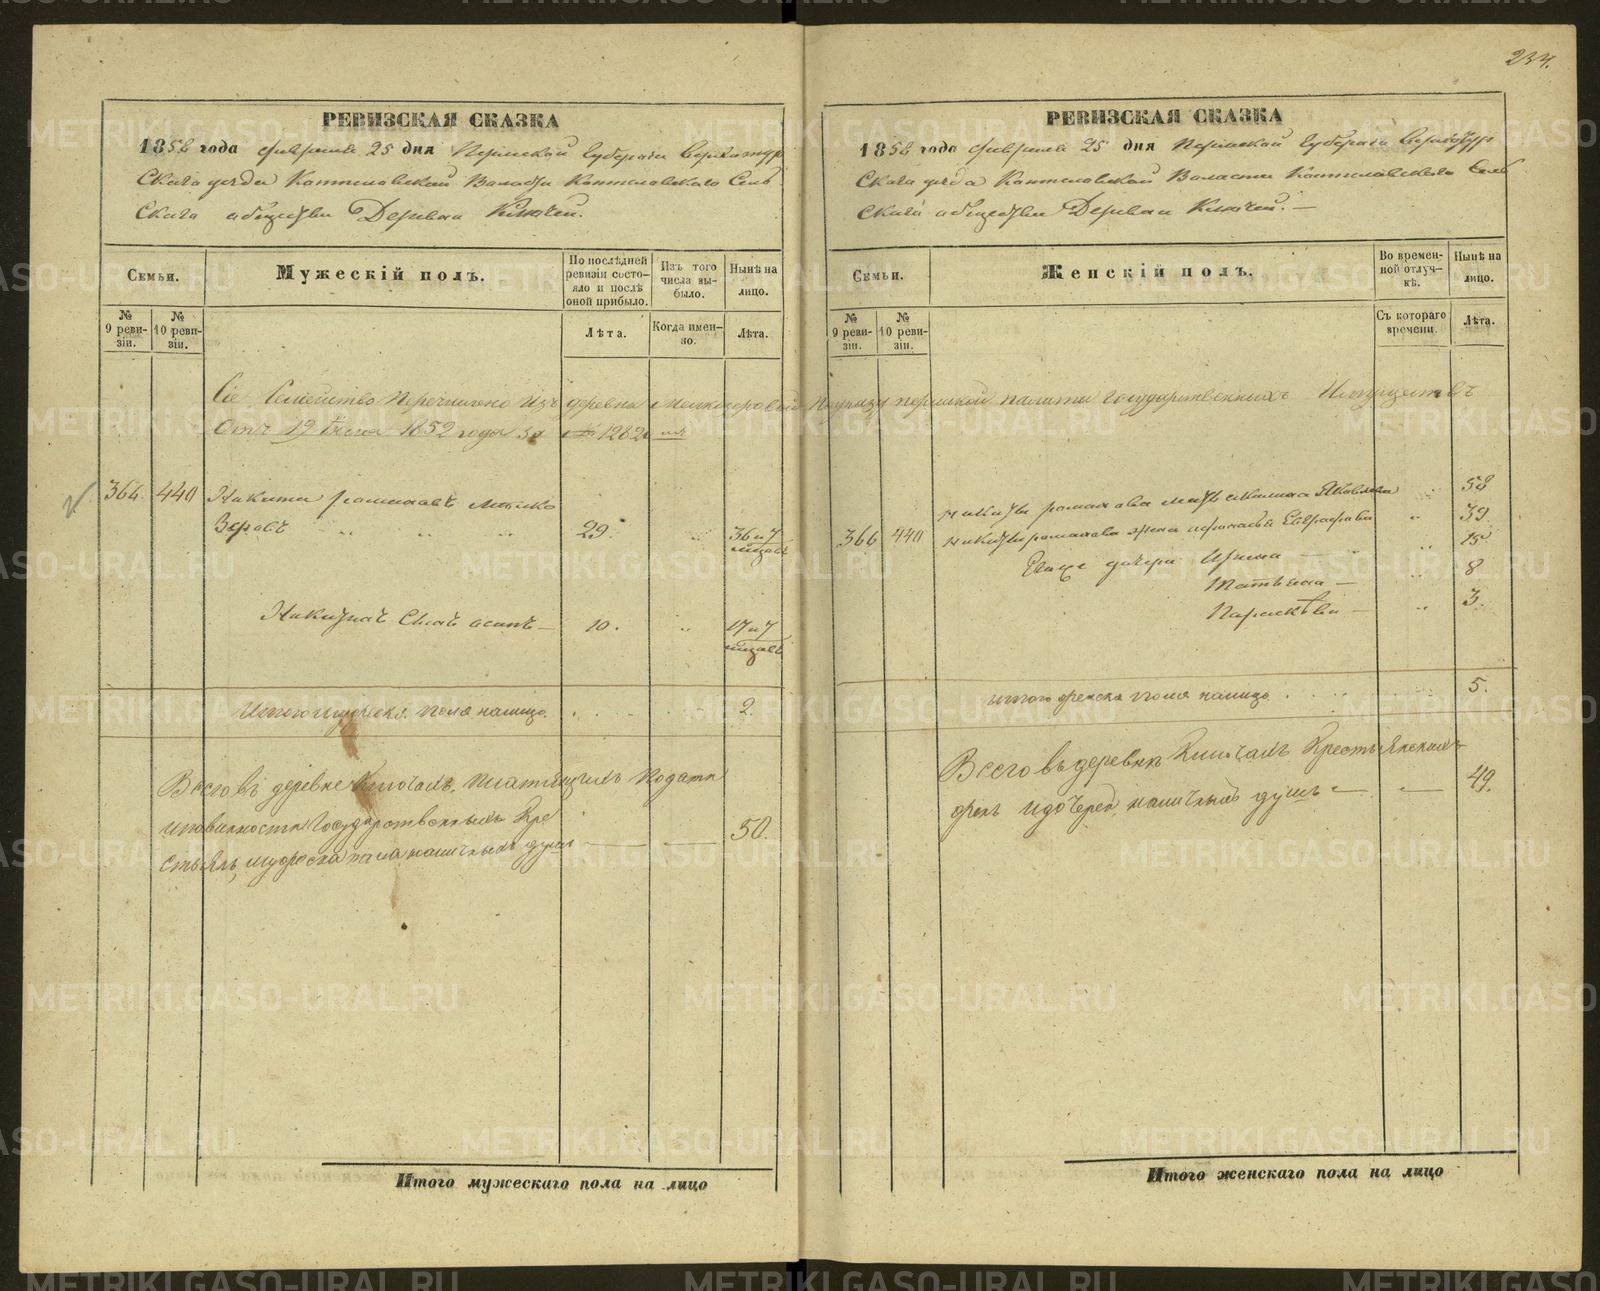 234.
РЕВИЗСКАЯ СКАЗКА
1858 года февраля 25 дня Пермской Губернии Верхотур
скаго уезда Коптеловской Волости Коптеловского Сель
скаго общества Деревни Ключей.
Семьи.
Мужескій полъ.
По послѣдней ревизіи состояло и послѣ оной прибыло.
Изъ того числа выбыло.
Нынѣ на лицо.
№ 9 ревизіи.
№ 10 ревизіи.
Лѣта.
Когда именно.
Лѣта.
Сіе Семейство Перечислено Изъ деревни Мелкозеровой По указу пермской палаты Государственныхъ Имуществъ
Отъ 19 1852 года за № 1282
366. 440 Никита романовъ Мелко
зеровъ 29. 36 и 7 месяцовъ
Никитинъ Сынъ осипъ — 10. 17 и 7 месяцовъ
Итого мужеска пола налицо. 2.
Всего въ деревне Ключахъ, платящихъ Подати
и повинности Государственныхъ Кре
стьянъ, мужеска пола наличныхъ душъ — 50.
Итого мужескаго пола на лицо
РЕВИЗСКАЯ СКАЗКА
1858 года февраля 25 дня Пермской Губернии Верхотур
скаго уезда Коптеловской Волости Коптеловскаго Сель
скаго общества Деревни Ключей. —
Семьи.
Женскій полъ.
Во временной отлучкѣ.
Нынѣ на лицо.
№ 9 ревизіи.
№ 10 ревизіи.
Съ котораго времени.
Лѣта.
Никиты романова мать Яковлева 58
366 440 Никиты романова жена Евграфова 39.
Его дочери Ирина — 15
Татьяна — 8
Парасковья — 3.
Итого женска пола налицо 5.
Всего въ деревне Ключахъ Крестьянскихъ
женъ и дочерей наличныхъ душъ — 49.
Итого женскаго пола на лицо
METRIKI.GASO-URAL.RU